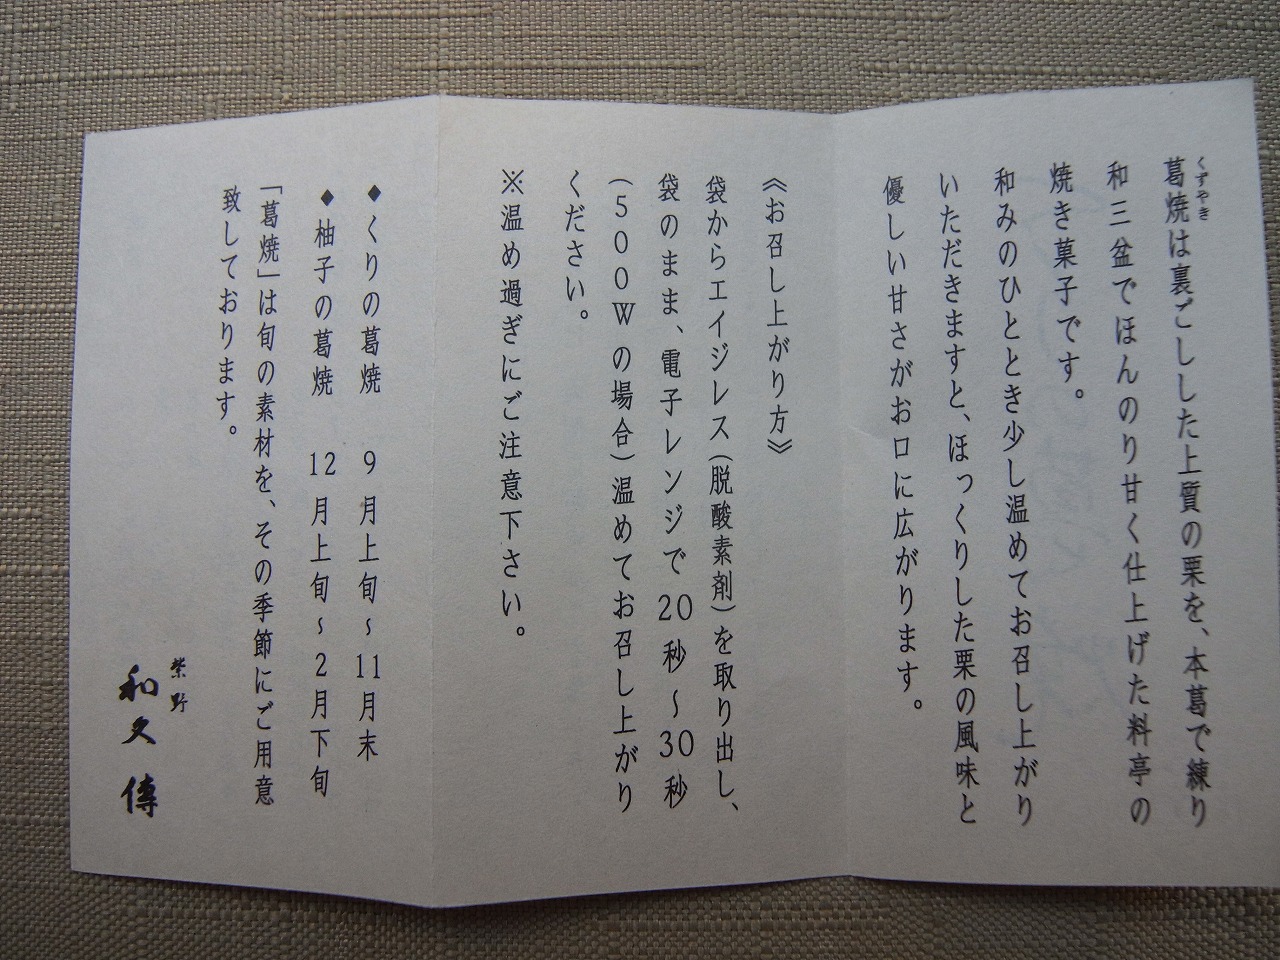 くずやき
葛焼は裏ごしした上質の栗を、本葛で練り
和三盆でほんのり甘く仕上げた料亭の
焼き菓子です。
和みのひととき少し温めてお召し上がり
いただきますと、ほっくりした栗の風味と
優しい甘さがお口に広がります。
《お召し上がり方》
袋からエイジレス(脱酸素剤)を取り出し、
袋のまま、電子レンジで20秒〜30秒
(500Wの場合)温めてお召し上がり
ください。
※温め過ぎにご注意下さい。
◆くりの葛焼 9月上旬〜11月末
◆柚子の葛焼 12月上旬〜2月下旬
「葛焼」は旬の素材を、その季節にご用意
致しております。
紫野
和久傳